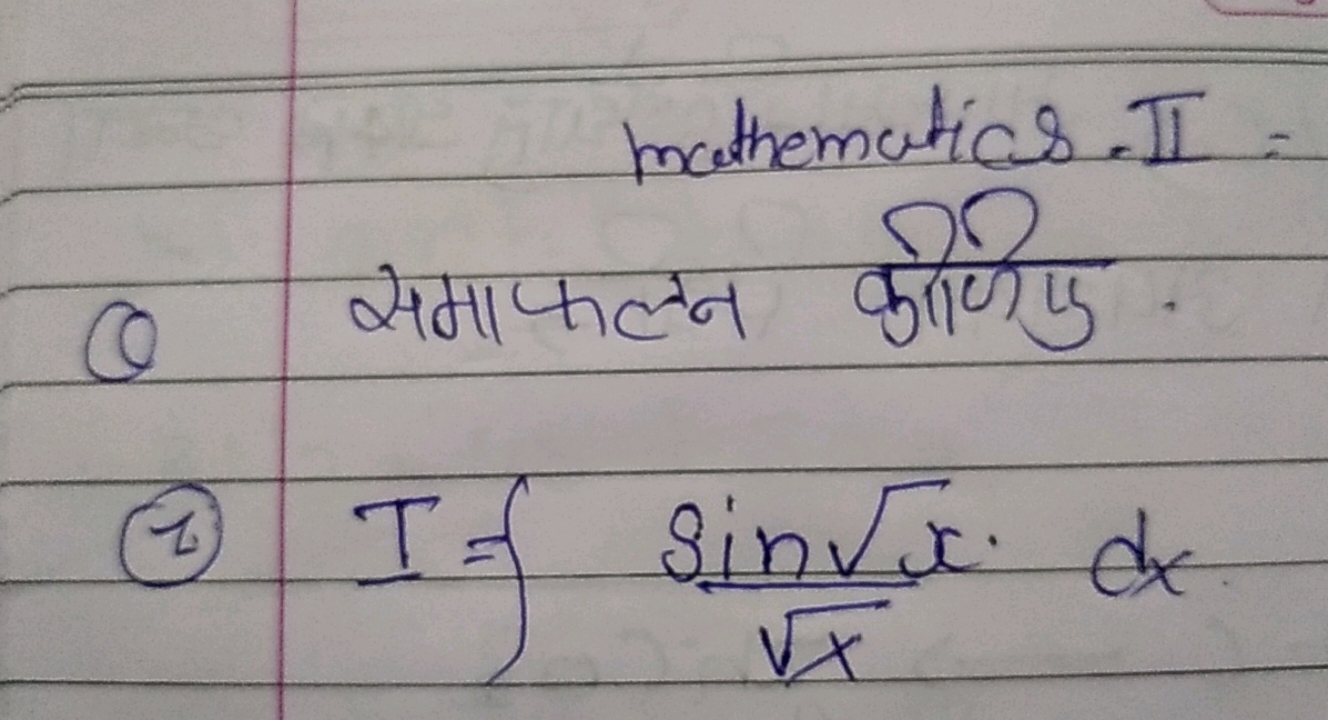 mathematics - II =
Q समाकलन कीजिए .
(i) I = ∫ sin√x / √x . dx